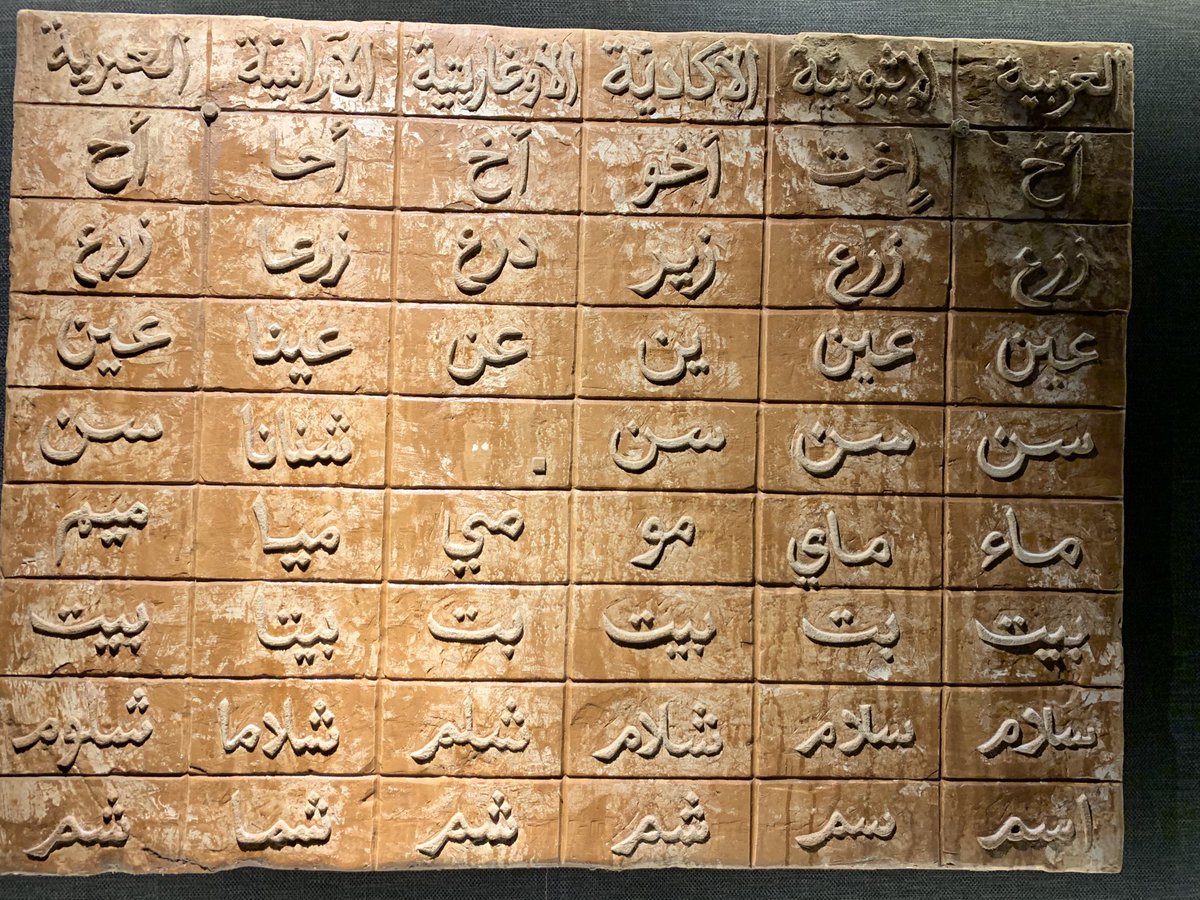 العربية الإثيوبية الأكادية الأوغاريتية الآرامية العبرية
أخ إخت أخو أخ أحا أح
زرع زرع زير درع زرعا زرع
عين عين ين عن عينا عين
سن سن سن شنانا سن
ماء ماي مو مي ميا ميم
بيت بت بيت بت بيتا بيت
سلام سلام شلام شلم شلاما شلوم
اسم سم شم شم شما شم